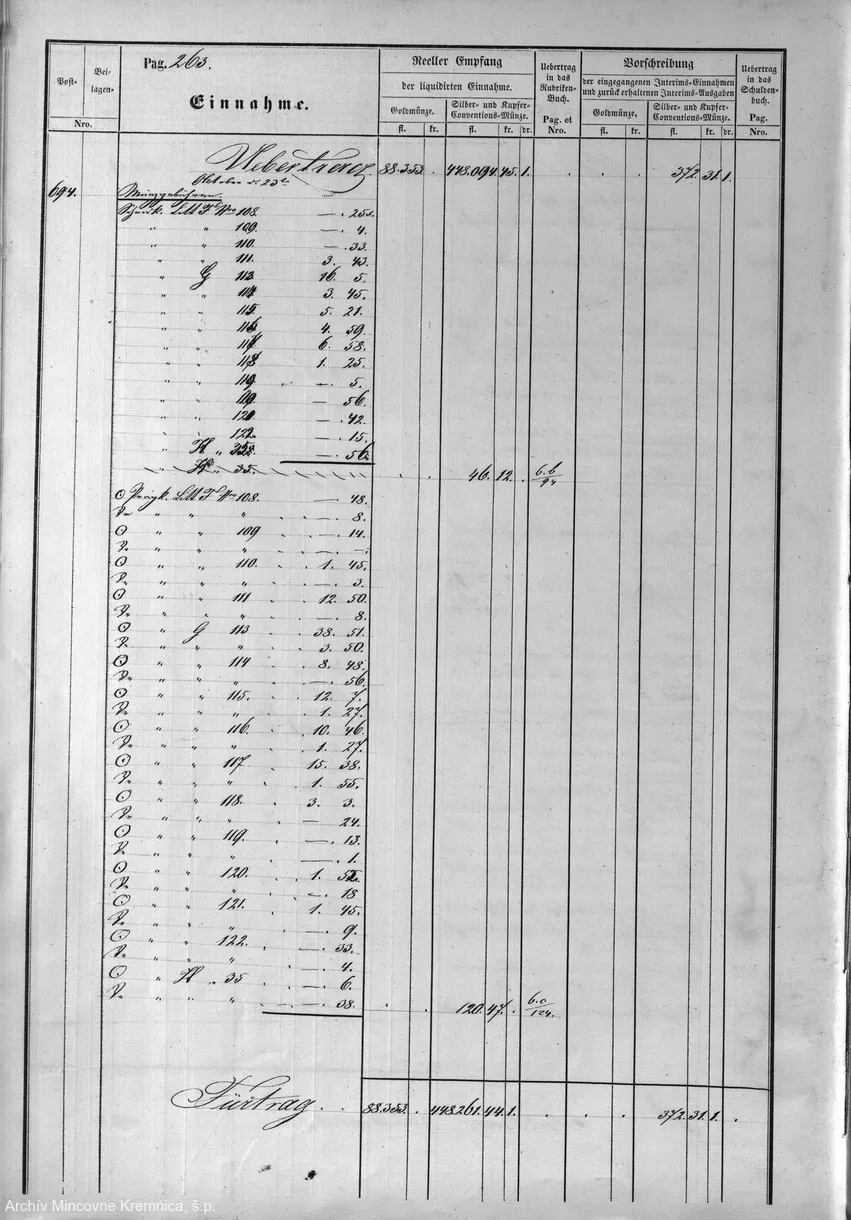 Pag. 263.
Einnahme.
Post-
Bei-
lagen-
Nro.
Reeller Empfang
der liquidirten Einnahme.
Goldmünze.
Silber- und Kupfer-
Conventions-Münze.
fl. kr. fl. kr. dr.
Uebertrag
in das
Rubriken-
Buch.
Pag. et
Nro.
Vorschreibung
der eingegangenen Interims-Einnahmen
und zurück erhaltenen Interims-Ausgaben
Goldmünze,
Silber- und Kupfer-
Conventions-Münze.
fl. kr. fl. kr. dr.
Uebertrag
in das
Schulden-
buch.
Pag.
Nro.
Uebertrag. 88.353. 448.094. 45. 1. 372. 31. 1.
Oktober 23
694. Münzgebühren
Litt F Nro 108. —
" " 109. — . 4.
" " 110. — . 33.
" " 111. 3. 43.
" G 113 16. 5.
" " 114 3. 45.
" " 115 5. 21.
" " 116 4. 59.
" " 117 6. 58.
" " 118 1. 25.
" " 119 — . 5.
" " — 56.
" " — . 42.
" " 122 — . 15.
" H " — . 56.
" H " 35. 46. 12. 6.b/94
Litt F Nro 108. — . 48.
" " " — . 8.
" " 109 — . 14.
" " " — . —
" " 110. 1. 45.
" " " — . 3.
" " 111 12. 50.
" " " — . 8.
" G 113 38. 51.
" " " 3. 50.
" " 114 8. 48.
" " " — . 56.
" " 115. 12. 7.
" " " 1. 27.
" " 116. 10. 46.
" " " 1. 27.
" " 117 15. 38.
" " " 1. 55.
" " 118. 3. 3.
" " " — 24.
" " 119. — . 13.
" " " — . 1.
" " 120. 1.
" " " — . 18
" " 121. 1. 45.
" " " — . 9.
" " 122. — . 33.
" " " — . 4.
" H " 35 — . 6.
" " " — . 38. 120. 47. 6.c/124.
Fürtrag. 88.353. 448.261. 44. 1. 372. 31. 1.
Archiv Mincovne Kremnica, š.p.